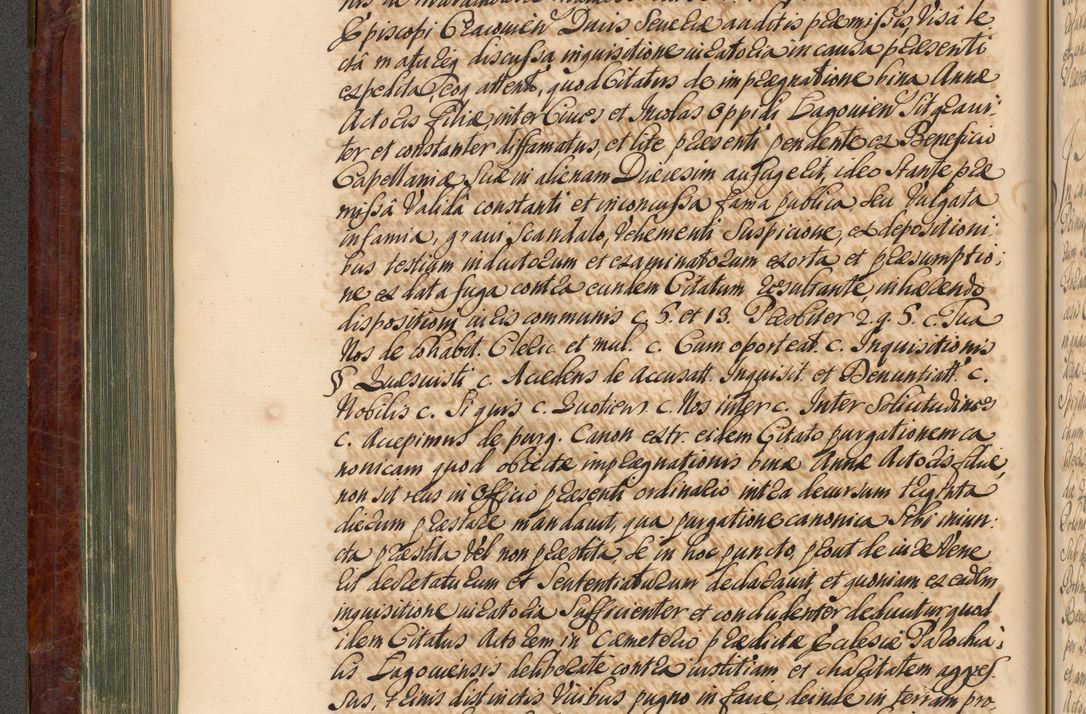 Episcopi Cracovien Ducis Severiæ auditis præmissis, visâ le
ctâ matureq discussa inquisitione iuratoria in causa præsenti
expedita, eoq attentô, quod Citatus de impregnatione bina Annæ
Actoris filiæ inter Cives et Incolas Oppidi Lagovien sit gravi:
ter et constanter diffamatus, et lite præsenti pendente ex Beneficio
Capellaniæ suæ in alienam Diæcesim aufugerit, ideo stante præ
missâ validâ constanti et inconcussa fama publica, seu vulgata
infamia, gravi scandalo, vehementi suspicione, ex depositioni:
bus testium inductorum et examinatorum exorta et præsumptio:
ne ex data fuga contra eundem Citatum resultante, inhærendo
dispositioni iuris communis c. 5. et 13. Præsbiter 2. q. 5. c. Tua
Nos de Cohabit. Cleric. et mul. c. Cum oporteat. c. Inquisitionis
§ Quæsivisti c. Accedens de Accusatt. Inquisit. et Denuntiatt. c.
Nobilis c. Si quis c. Quotiens c. Nos inter c. Inter Solicitudines
c. Accepimus de purg. Canon extr. eidem Citato purgationem ca
nonicam quod obiectæ imprægnationis binæ Annæ Actoris filiæ,
non sit reus in Officio præsenti ordinario intra decursum triginta
dierum præstare mandavit, qua purgatione canonica sibi iniun:
cta præstita vel non præstita, se in hoc puncto, prout de iure vene
rit decretaturum et sententiaturum declaravit et quoniam ex eadem
inquisitione iuratoria sufficienter et concludenter deducitur quod
idem Citatus Actorem in Cæmeterio prædictæ Ecclesiæ Parochia:
lis Lagoviensis deliberate contra iustitiam et charitatem aggres:
sus, trinis distinctis vicibus pugno in faciê, deinde in terram pro: